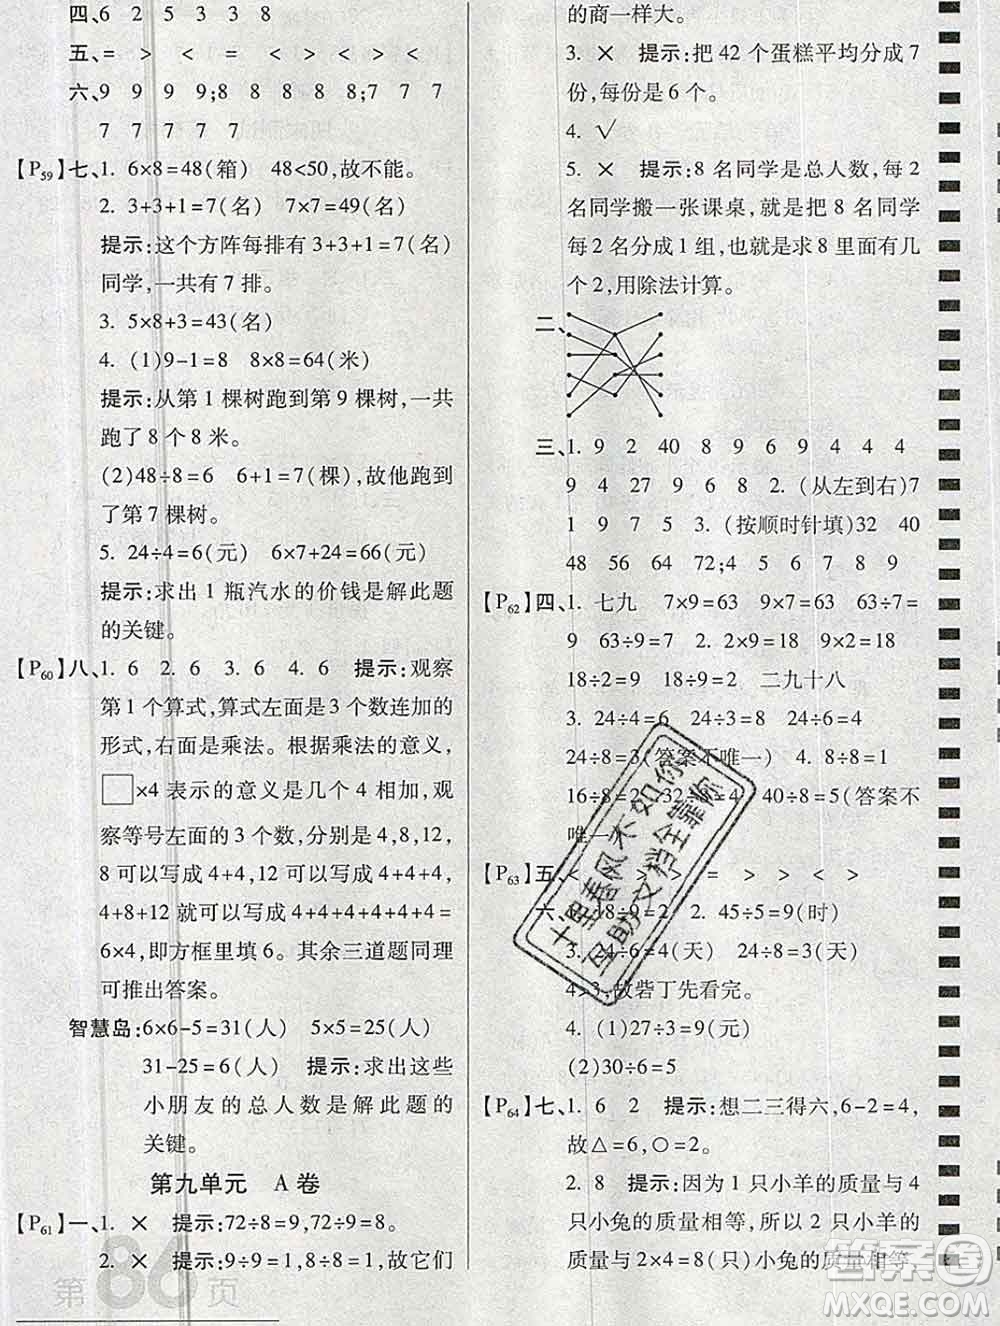 四、6 2 5 3 3 8
五、= > < = < > < > <
六、9 9 9 9;8 8 8 8 8;7 7 7
7 7 7 7 7
【P59】七、1. 6×8=48(箱) 48<50,故不能。
2. 3+3+1=7(名) 7×7=49(名)
提示:这个方阵每排有3+3+1=7(名)
同学,一共有7排。
3. 5×8+3=43(名)
4. (1)9-1=8 8×8=64(米)
提示:从第1棵树跑到第9棵树,一共
跑了8个8米。
(2)48÷8=6 6+1=7(棵),故他跑到
了第7棵树。
5. 24÷4=6(元) 6×7+24=66(元)
提示:求出1瓶汽水的价钱是解此题
的关键。
【P60】八、1. 6 2. 6 3. 6 4. 6 提示:观察
第1个算式,算式左面是3个数连加的
形式,右面是乘法。根据乘法的意义,
□×4表示的意义是几个4相加,观
察等号左面的3个数,分别是4,8,12,
8可以写成4+4,12可以写成4+4+4,
4+8+12就可以写成4+4+4+4+4+4=
6×4,即方框里填6。其余三道题同理
可推出答案。
智慧岛:6×6-5=31(人) 5×5=25(人)
31-25=6(人) 提示:求出这些
小朋友的总人数是解此题的
关键。
第九单元 A卷
【P61】一、1. × 提示:72÷8=9,72÷9=8。
2. × 提示:9÷9=1,8÷8=1,故它们
第86页
的商一样大。
3. × 提示:把42个蛋糕平均分成7
份,每份是6个。
4. √
5. × 提示:8名同学是总人数,每2
名同学搬一张课桌,就是把8名同学
每2名分成1组,也就是求8里面有几
个2,用除法计算。
二、
三、1. 9 2 40 8 9 6 9 4 4 4
9 4 27 9 6 8 2. (从左到右)7
1 9 7 5 3. (按顺时针填)32 40
48 56 64 72;4 5 6 7 8 9
【P62】四、1. 七九 7×9=63 9×7=63 63÷7=
9 63÷9=7 2. 2×9=18 9×2=18
18÷2=9 18÷9=2 二九十八
3. 24÷4=6 24÷3=8 24÷6=4
24÷8=3(答案不唯一) 4. 8÷8=1
16÷8=2 32÷8=4 40÷8=5(答案不
唯一)
【P63】五、< > > > = > > < >
六、÷9=2 2. 45÷5=9(时)
3. 24÷6=4(天)
4>3,故砦丁先看完。
4. (1)27÷3=9(元)
(2)30÷6=5
【P64】七、1. 6 2 提示:想二三得六,6-2=4,
故△=6,○=2。
2. 8 提示:因为1只小羊的质量与4
只小兔的质量相等,所以2只小羊的
质量与2×4=8(只)小兔的质量相等。
十里春风不如你
互助文档全靠你
答案圈
MXQE.COM